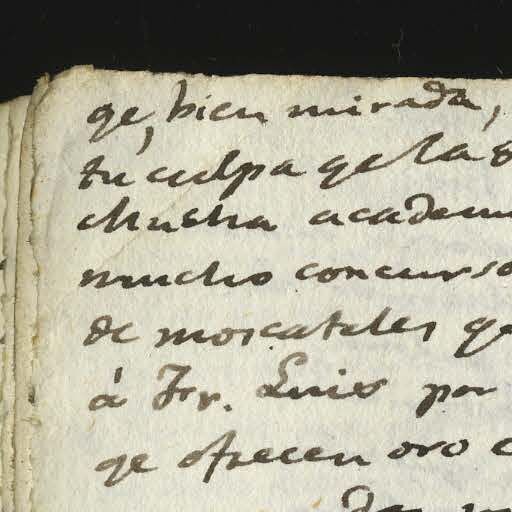 qe, bien mirada,
tu culpa qe la
chusha academ
mucho concurso
de moscateles qe
á Fr. Luis por
qe ofrecen oro